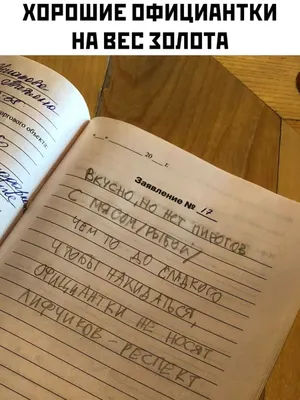 ХОРОШИЕ ОФИЦИАНТКИ
НА ВЕС ЗОЛОТА
торгового объекта
" " 20 г.
Заявление № 17
ВКУСНО, НО НЕТ ПИРОГОВ
С МЯСОМ/РЫБОЙ/
ЧЕМ ТО ДО СЛАДКОГО
ЧТОБЫ НАКИДАТЬСЯ,
ОФИЦИАНТКИ НЕ НОСЯТ
ЛИФЧИКОВ - РЕСПЕКТ